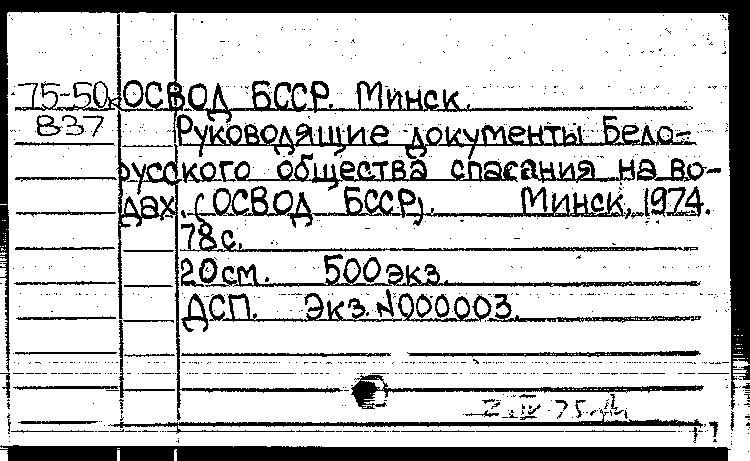 75-50к ОСВОД БССР. Минск.
В37 Руководящие документы Бело-
русского общества спасания на во-
дах. (ОСВОД БССР). Минск, 1974.
78 с.
20 см. 500 экз.
ДСП. Экз. N000003.
2.IV 75